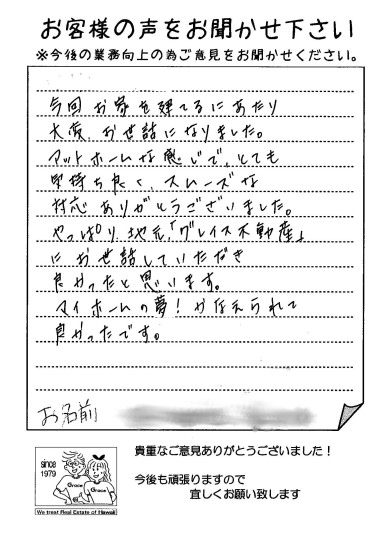 お客様の声をお聞かせ下さい
※今後の業務向上の為ご意見をお聞かせください。
今回 お家を建てるにあたり
大変、お世話になりました。
アットホームな感じで、とても
気持ち良く、スムーズな
対応 ありがとうございました。
やっぱり、地元「グレイス不動産」
に お世話していただき
良かったと思います。
マイホームの夢！かなえられて
良かったです。
お名前
貴重なご意見ありがとうございました！
今後も頑張りますので
宜しくお願い致します
since
1979
Grace
Grace
We treat Real Estate of Hawaii